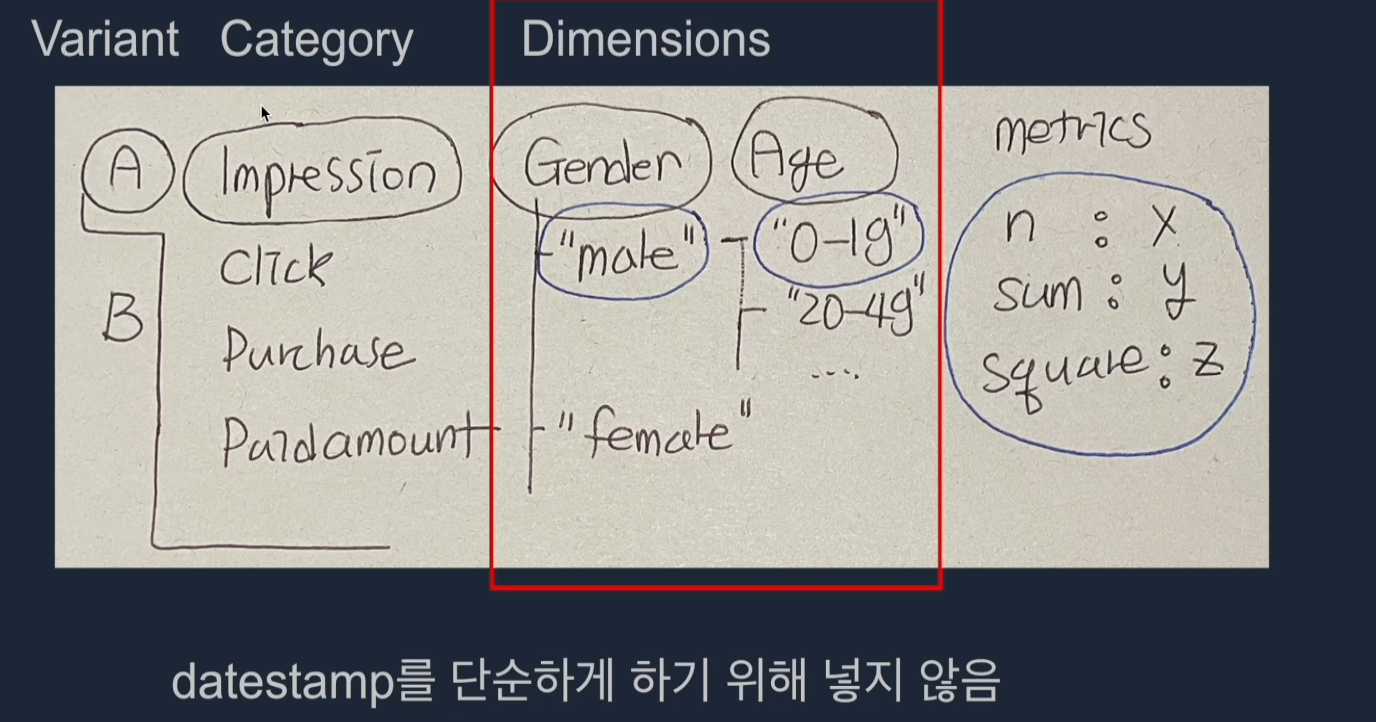 Variant Category Dimensions
A Impression Gender Age metrics
"male" "0-19" n : x
Click
"20-49" sum : y
B
Purchase .... square : z
Paidamount "female"
datestamp를 단순하게 하기 위해 넣지 않음